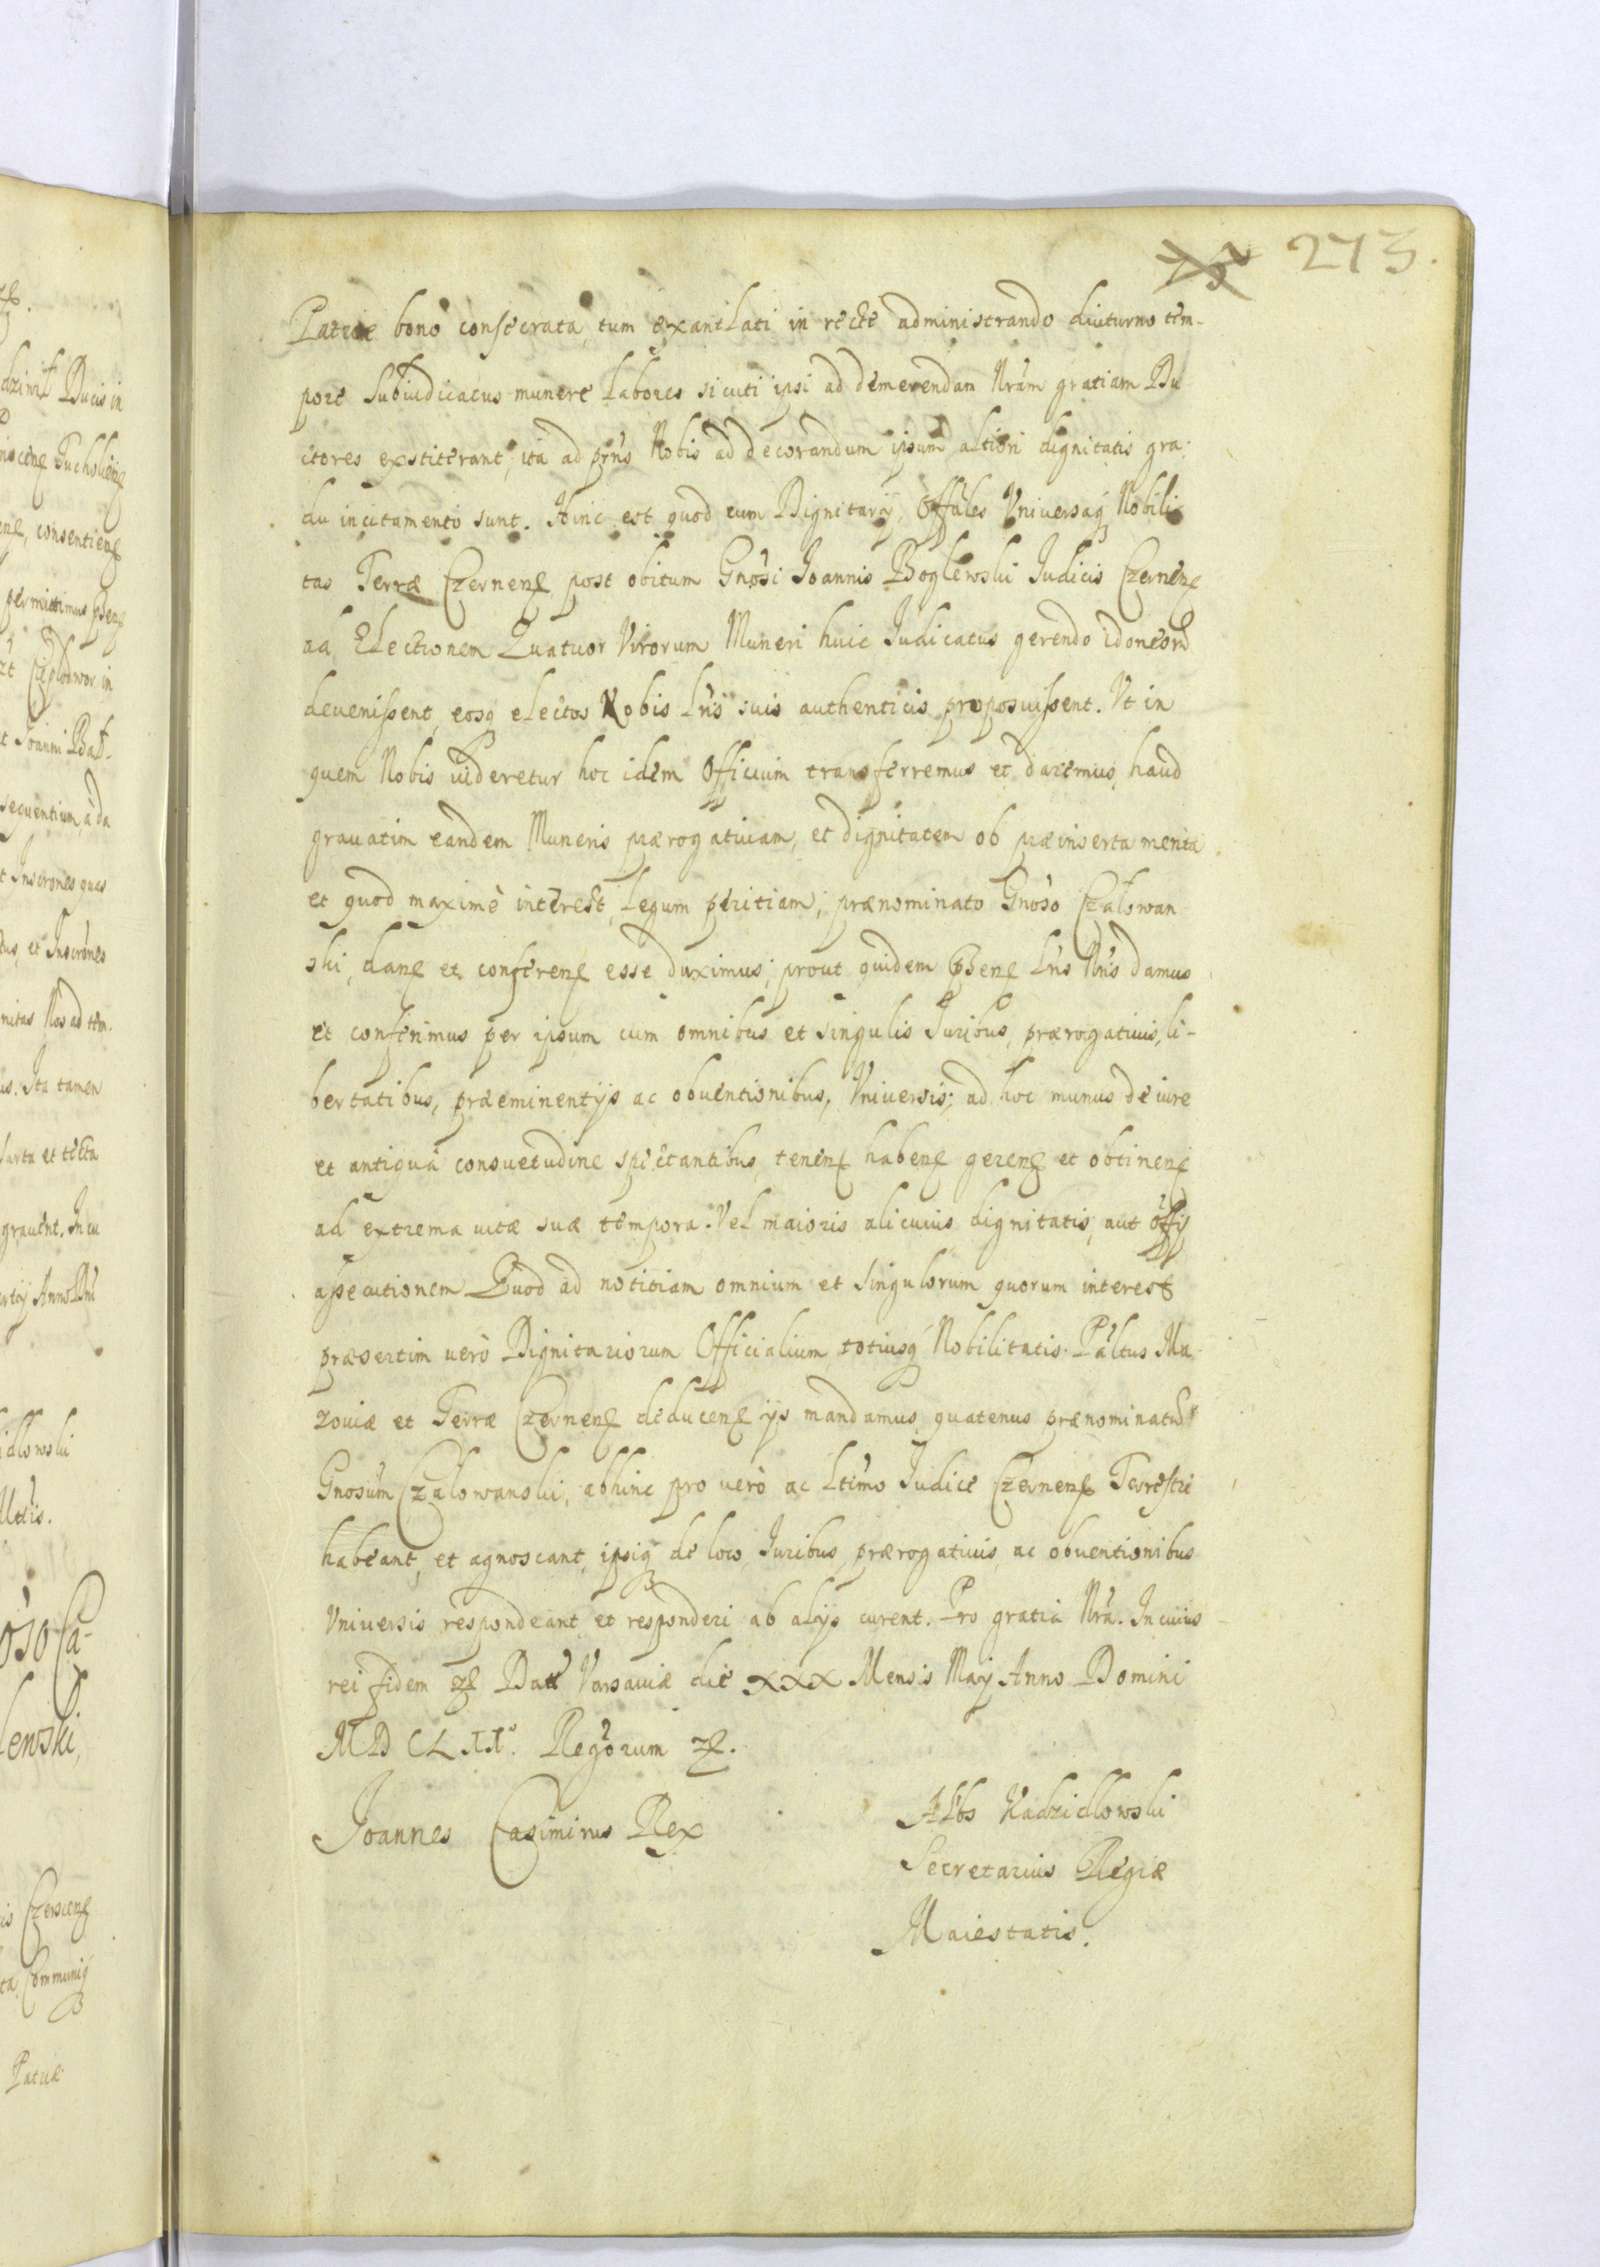 273.
Patriæ bono consecrata, tum exantlati in recte administrando diuturno tem-
pore Subiudicatus munere labores sicuti ipsi ad demerendam Nram gratiam Du
ctores exstiterant, ita ad pñs Nobis ad decorandum ipsum altiori dignitatis gra-
du incitamento sunt. Hinc est quod cum Dignitarij, Offales Vniversaq Nobili-
tas Terræ Czernenẽ post obitum Gnosi Joannis Boglewski Judicis Czernenẽ
ad Electionem Quatuor Virorum Muneri huic Judicatus gerendo idoneorũ
devenissent, eosq electos Nobis Lris suis authenticis proposuissent. Vt in
quem Nobis uideretur hoc idem Officium transferremus et daremus, haud
grauatim eandem Muneris prærogatiuam, et dignitatem ob præinserta merita
et quod maximè interest, Legum peritiam, prænominato Gnoso Czalowan
ski, danẽ et conferenẽ esse duximus; prout quidem pñsenẽ Lris Nris damus
et conferimus per ipsum cum omnibus et singulis Juribus, prærogatiuis, li-
bertatibus, præeminentijs ac obuentionibus, Vniversis, ad hoc munus de iure
et antiquâ consuetudine spectantibus, tenenẽ habenẽ gerenẽ et obtinenẽ
ad extrema uitæ suæ tempora. Vel maioris alicuius dignitatis, aut offij
assecutionem Quod ad notitiam omnium et singulorum quorum interest
præsertim uerò Dignitariorum Officialium, totiusq Nobilitatis Paltus Ma
zouiæ et Terræ Czernenẽ deducenẽ ijs mandamus, quatenus prænominatũ
Gnosum Czalowanski, abhinc pro uerò ac Ltimo Judice Czernenẽ Terrestri
habeant, et agnoscant, ipsiq de loco, Juribus, prærogatiuis, ac obuentionibus
Vniversis respondeant et responderi ab alijs curent. Pro gratia Nra. In cuius
rei fidem Datt Varsauiæ die XXX Mensis Maij Anno Domini
MDCLII. Regnorum
Joannes Casimirus Rex
Albs Kadzidlowski
Secretarius Regiæ
Maiestatis.